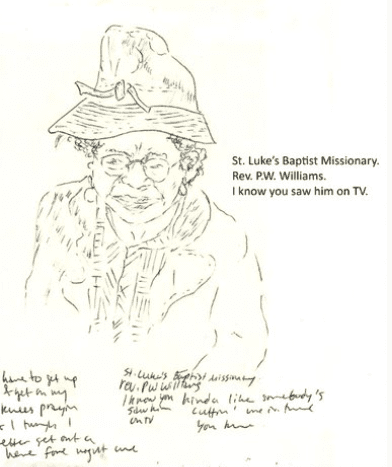 St. Luke's Baptist Missionary.
Rev. P.W. Williams.
I know you saw him on TV.
have to get up
& get on my
knees prayin
I
better get out a
here fore night come
St. Luke's Baptist Missionary
rev. P.W. Williams
I know you kinda like somebody's
saw him cuttin' me in two
on TV You know